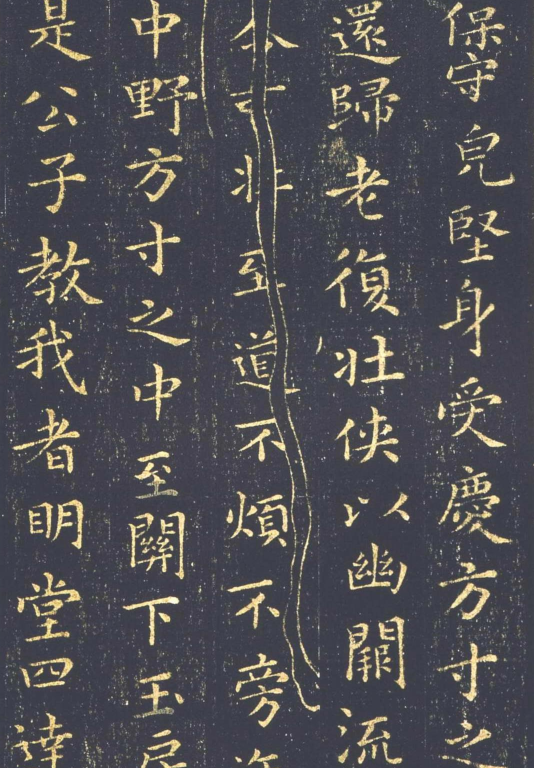 保守皃堅身受慶方寸之
還歸老復壯俠以幽闕流
至道不煩不旁
中野方寸之中至關下玉
是公子教我者明堂四達